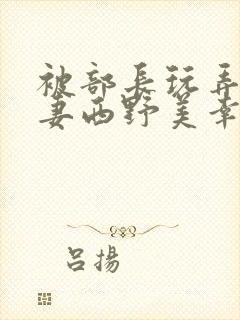 被部長玩弄
妻西野美幸
呂揚